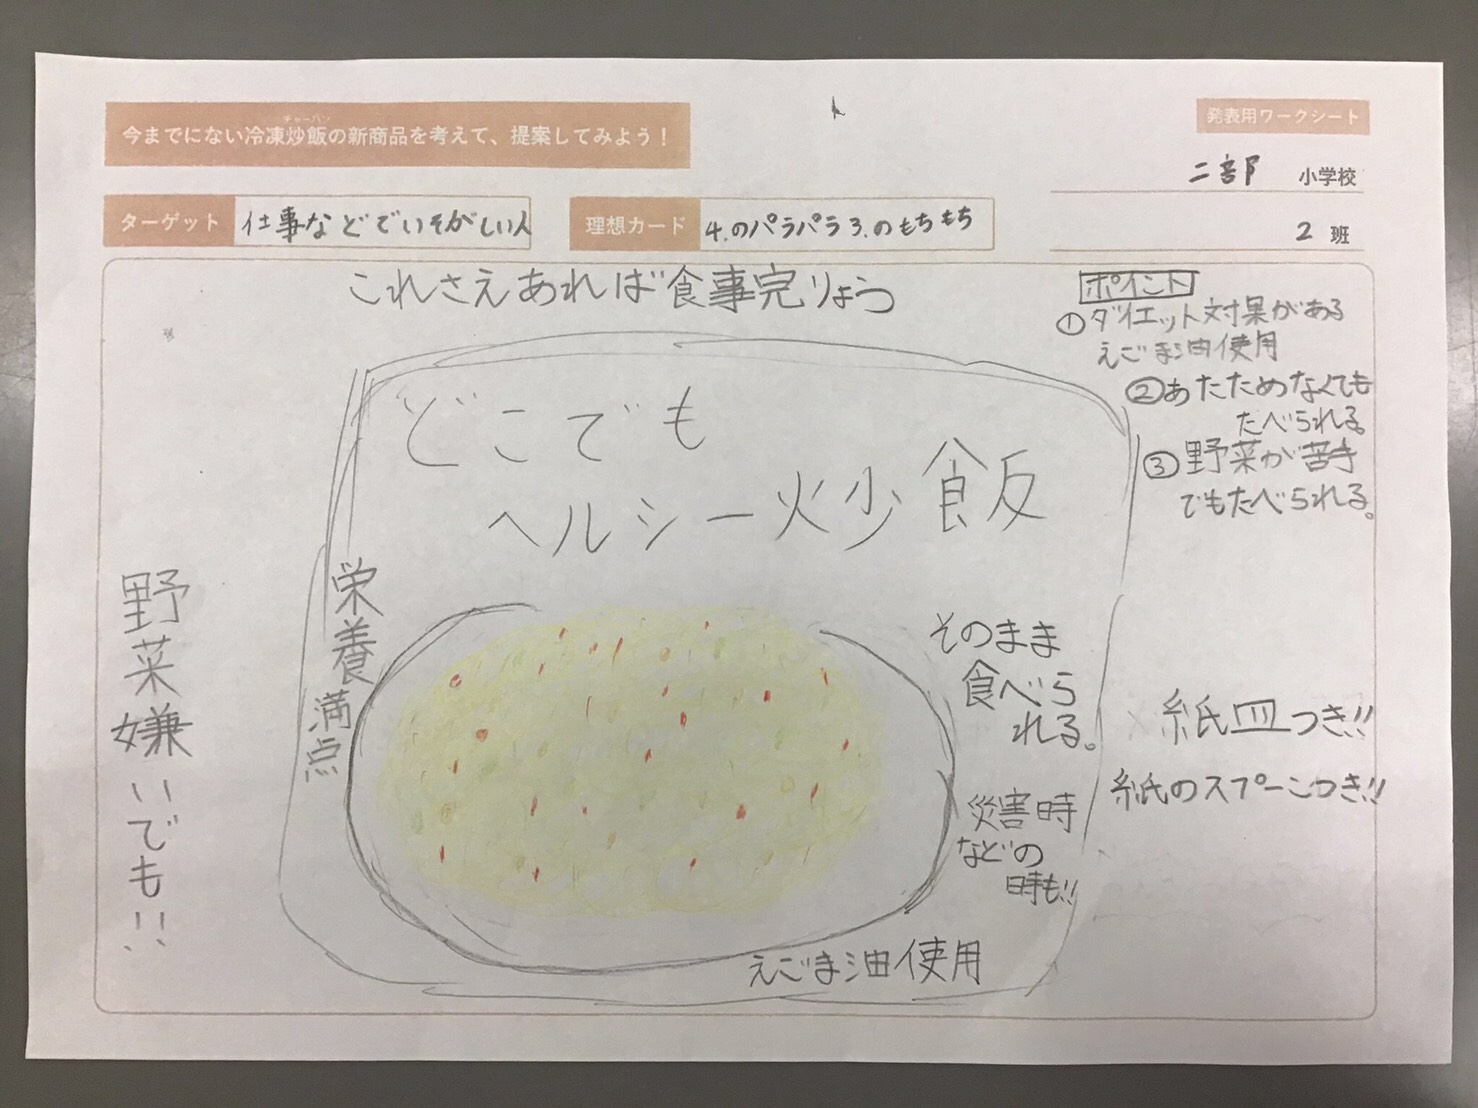 今までにない冷凍炒飯の新商品を考えて、提案してみよう！
チャーハン
発表用ワークシート
二部 小学校
2 班
ターゲット 仕事などでいそがしい人
理想カード 4.のパラパラ3.のもちもち
これさえあれば食事完りょう
ポイント
①ダイエット対果がある
えごま油使用
②あたためなくても
たべられる。
③野菜が苦手
でもたべられる。
どこでも
ヘルシー炒飯
栄養満点
野菜嫌いでも!!
そのまま
食べら
れる。
紙皿つき!!
紙のスプーンつき!!
災害時
などの
時も!!
えごま油使用